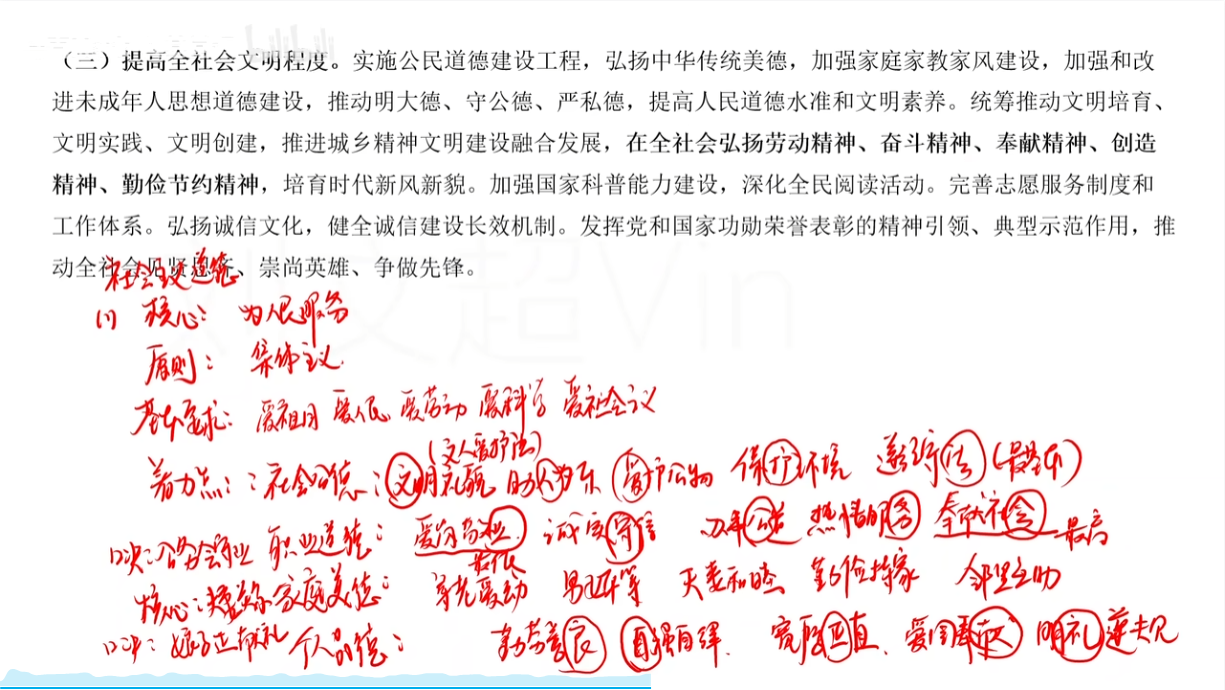 （三）提高全社会文明程度。实施公民道德建设工程，弘扬中华传统美德，加强家庭家教家风建设，加强和改
进未成年人思想道德建设，推动明大德、守公德、严私德，提高人民道德水准和文明素养。统筹推动文明培育、
文明实践、文明创建，推进城乡精神文明建设融合发展，在全社会弘扬劳动精神、奋斗精神、奉献精神、创造
精神、勤俭节约精神，培育时代新风新貌。加强国家科普能力建设，深化全民阅读活动。完善志愿服务制度和
工作体系。弘扬诚信文化，健全诚信建设长效机制。发挥党和国家功勋荣誉表彰的精神引领、典型示范作用，推
动全社会见贤思齐、崇尚英雄、争做先锋。
社会主义道德
(1) 核心：为人民服务
原则：集体主义
基本要求：爱祖国 爱人民 爱劳动 爱科学 爱社会主义
(文人爱护法)
着力点：：社会公德：文明礼貌 助人为乐 爱护公物 保护环境 遵纪守法(最基本)
口诀：公务会守业 职业道德：爱岗敬业 诚实守信 办事公道 热情服务 奉献社会 最高
最低
核心： 家庭美德： 尊老爱幼 男女平等 夫妻和睦 勤俭持家 邻里互助
口诀： 个人品德： 勤劳善良 自强自律 宽厚正直 爱国奉献 明礼遵